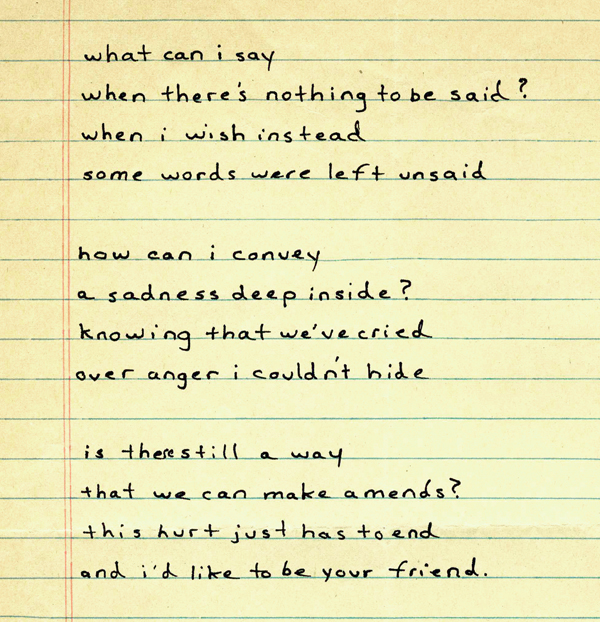 what can i say
when there's nothing to be said?
when i wish instead
some words were left unsaid
how can i convey
a sadness deep inside?
knowing that we've cried
over anger i couldn't hide
is there still a way
that we can make amends?
this hurt just has to end
and i'd like to be your friend.